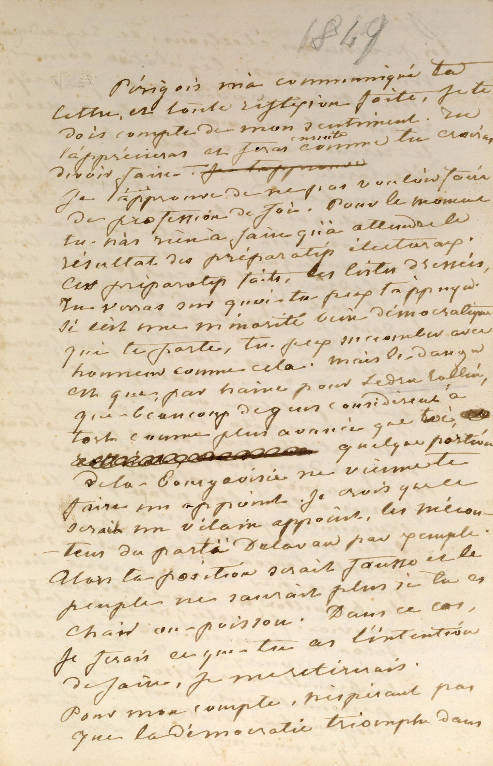 1849
Périgois m'a communiqué ta
lettre, et toute réflexion faite, je te
dois compte de mon sentiment. Tu
l'apprécieras et feras ensuite comme tu croiras
devoir faire. Je t'approuve
Je t'approuve de ne pas vouloir faire
de profession de foi. Pour le moment
tu n'as rien à faire qu'à attendre le
résultat des préparatifs électoraux.
Ces préparatifs faits, les listes dressées,
Tu verras sur quoi tu peux t'appuyer.
Si c'est une minorité bien démocratique
qui te porte, tu peux succomber avec
honneur comme cela. mais le danger
est que, par haine pour Ledru Rollin,
que beaucoup de gens considèrent à
tort comme plus avancé que toi,
quelque portion
de la Bourgeoisie ne vienne te
faire un appoint. Je crois que ce
serait un vilain appoint, les mécon-
-tens du parti Delavau par exemple.
Alors ta position serait fausse et le
peuple ne saurait plus si tu es
chair ou poisson. Dans ce cas,
je ferais ce que tu as l'intention
de faire, je me retirerais.
Pour mon compte, n'espérant pas
que la démocratie triomphe dans